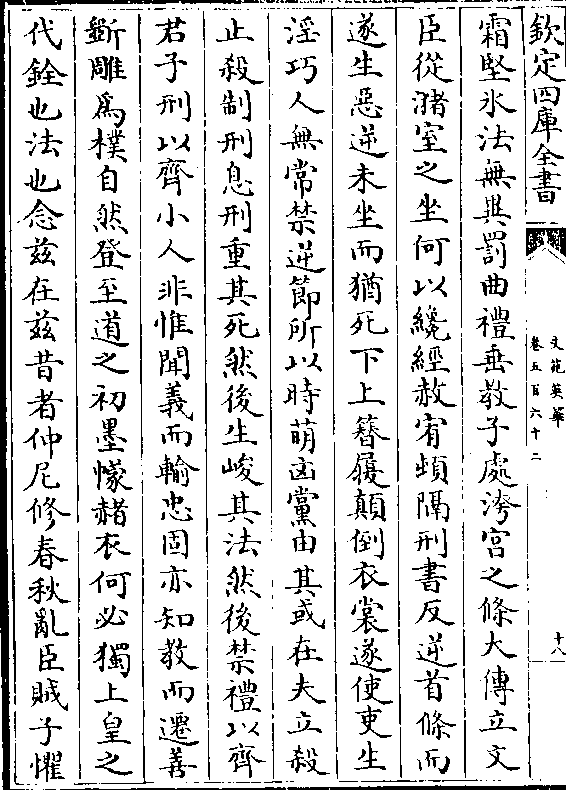 欽定四庫全書
文苑英華
卷五百六十二
十八
霜堅氷法無異罰曲禮垂教子處洿宫之條大傳立文
臣從瀦室之坐何以纔經赦宥頓隔刑書反逆首條而
遂生惡逆未坐而猶死下上簪屨顛倒衣裳遂使吏生
淫巧人無常禁逆節所以時萌凶黨由其或在夫立殺
止殺制刑息刑重其死然後生峻其法然後禁禮以齊
君子刑以齊小人非惟聞義而輸忠固亦知教而遷善
斵雕為樸自然登至道之初墨幪赭衣何必獨上皇之
代銓也法也念兹在兹昔者仲尼修春秋亂臣賊子懼